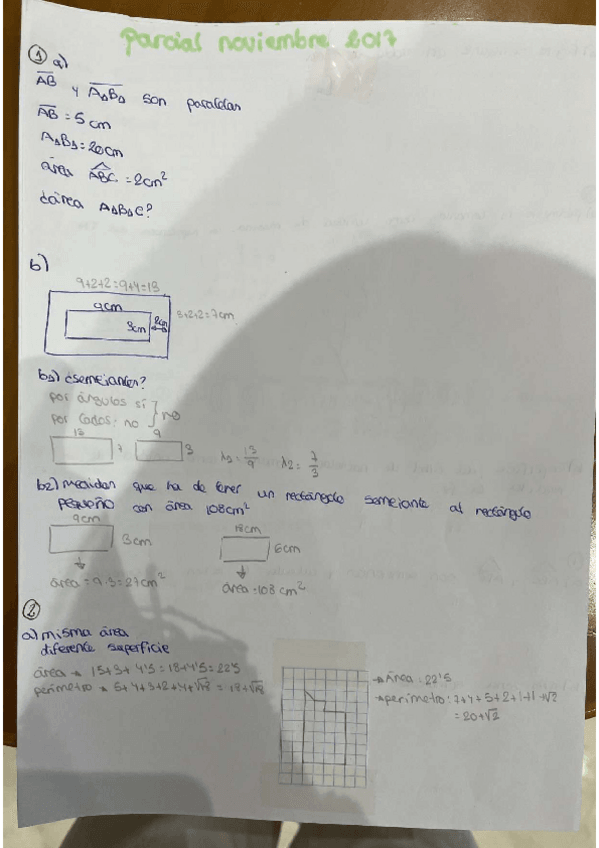 Parcial noviembre 2017
① a)
AB y A₁B₁ son paralelas
AB = 5cm
A₁B₁ = 20cm
área ABC = 2cm²
¿área A₁B₁C?
b)
9+2+2=9+4=13
9cm
3cm
2cm
3+2+2=7cm
b1) ¿semejantes?
por ángulos sí
por lados: no } no
13
7
9
3
λ1 = 13/9
λ2 = 7/3
b2) medidas que ha de tener un rectángulo semejante al rectángulo
PEQUEÑO con área 108cm²
9cm
3cm
18cm
6cm
área = 9·3 = 27cm²
área = 108 cm²
②
a) misma área
diferente superficie
área → 15+3+4'5 = 18+4'5 = 22'5
perímetro → 5+4+3+2+4+√18 = 18+√18
→ Área: 22'5
→ perímetro: 7+4+5+2+1+1+√2
= 20+√2